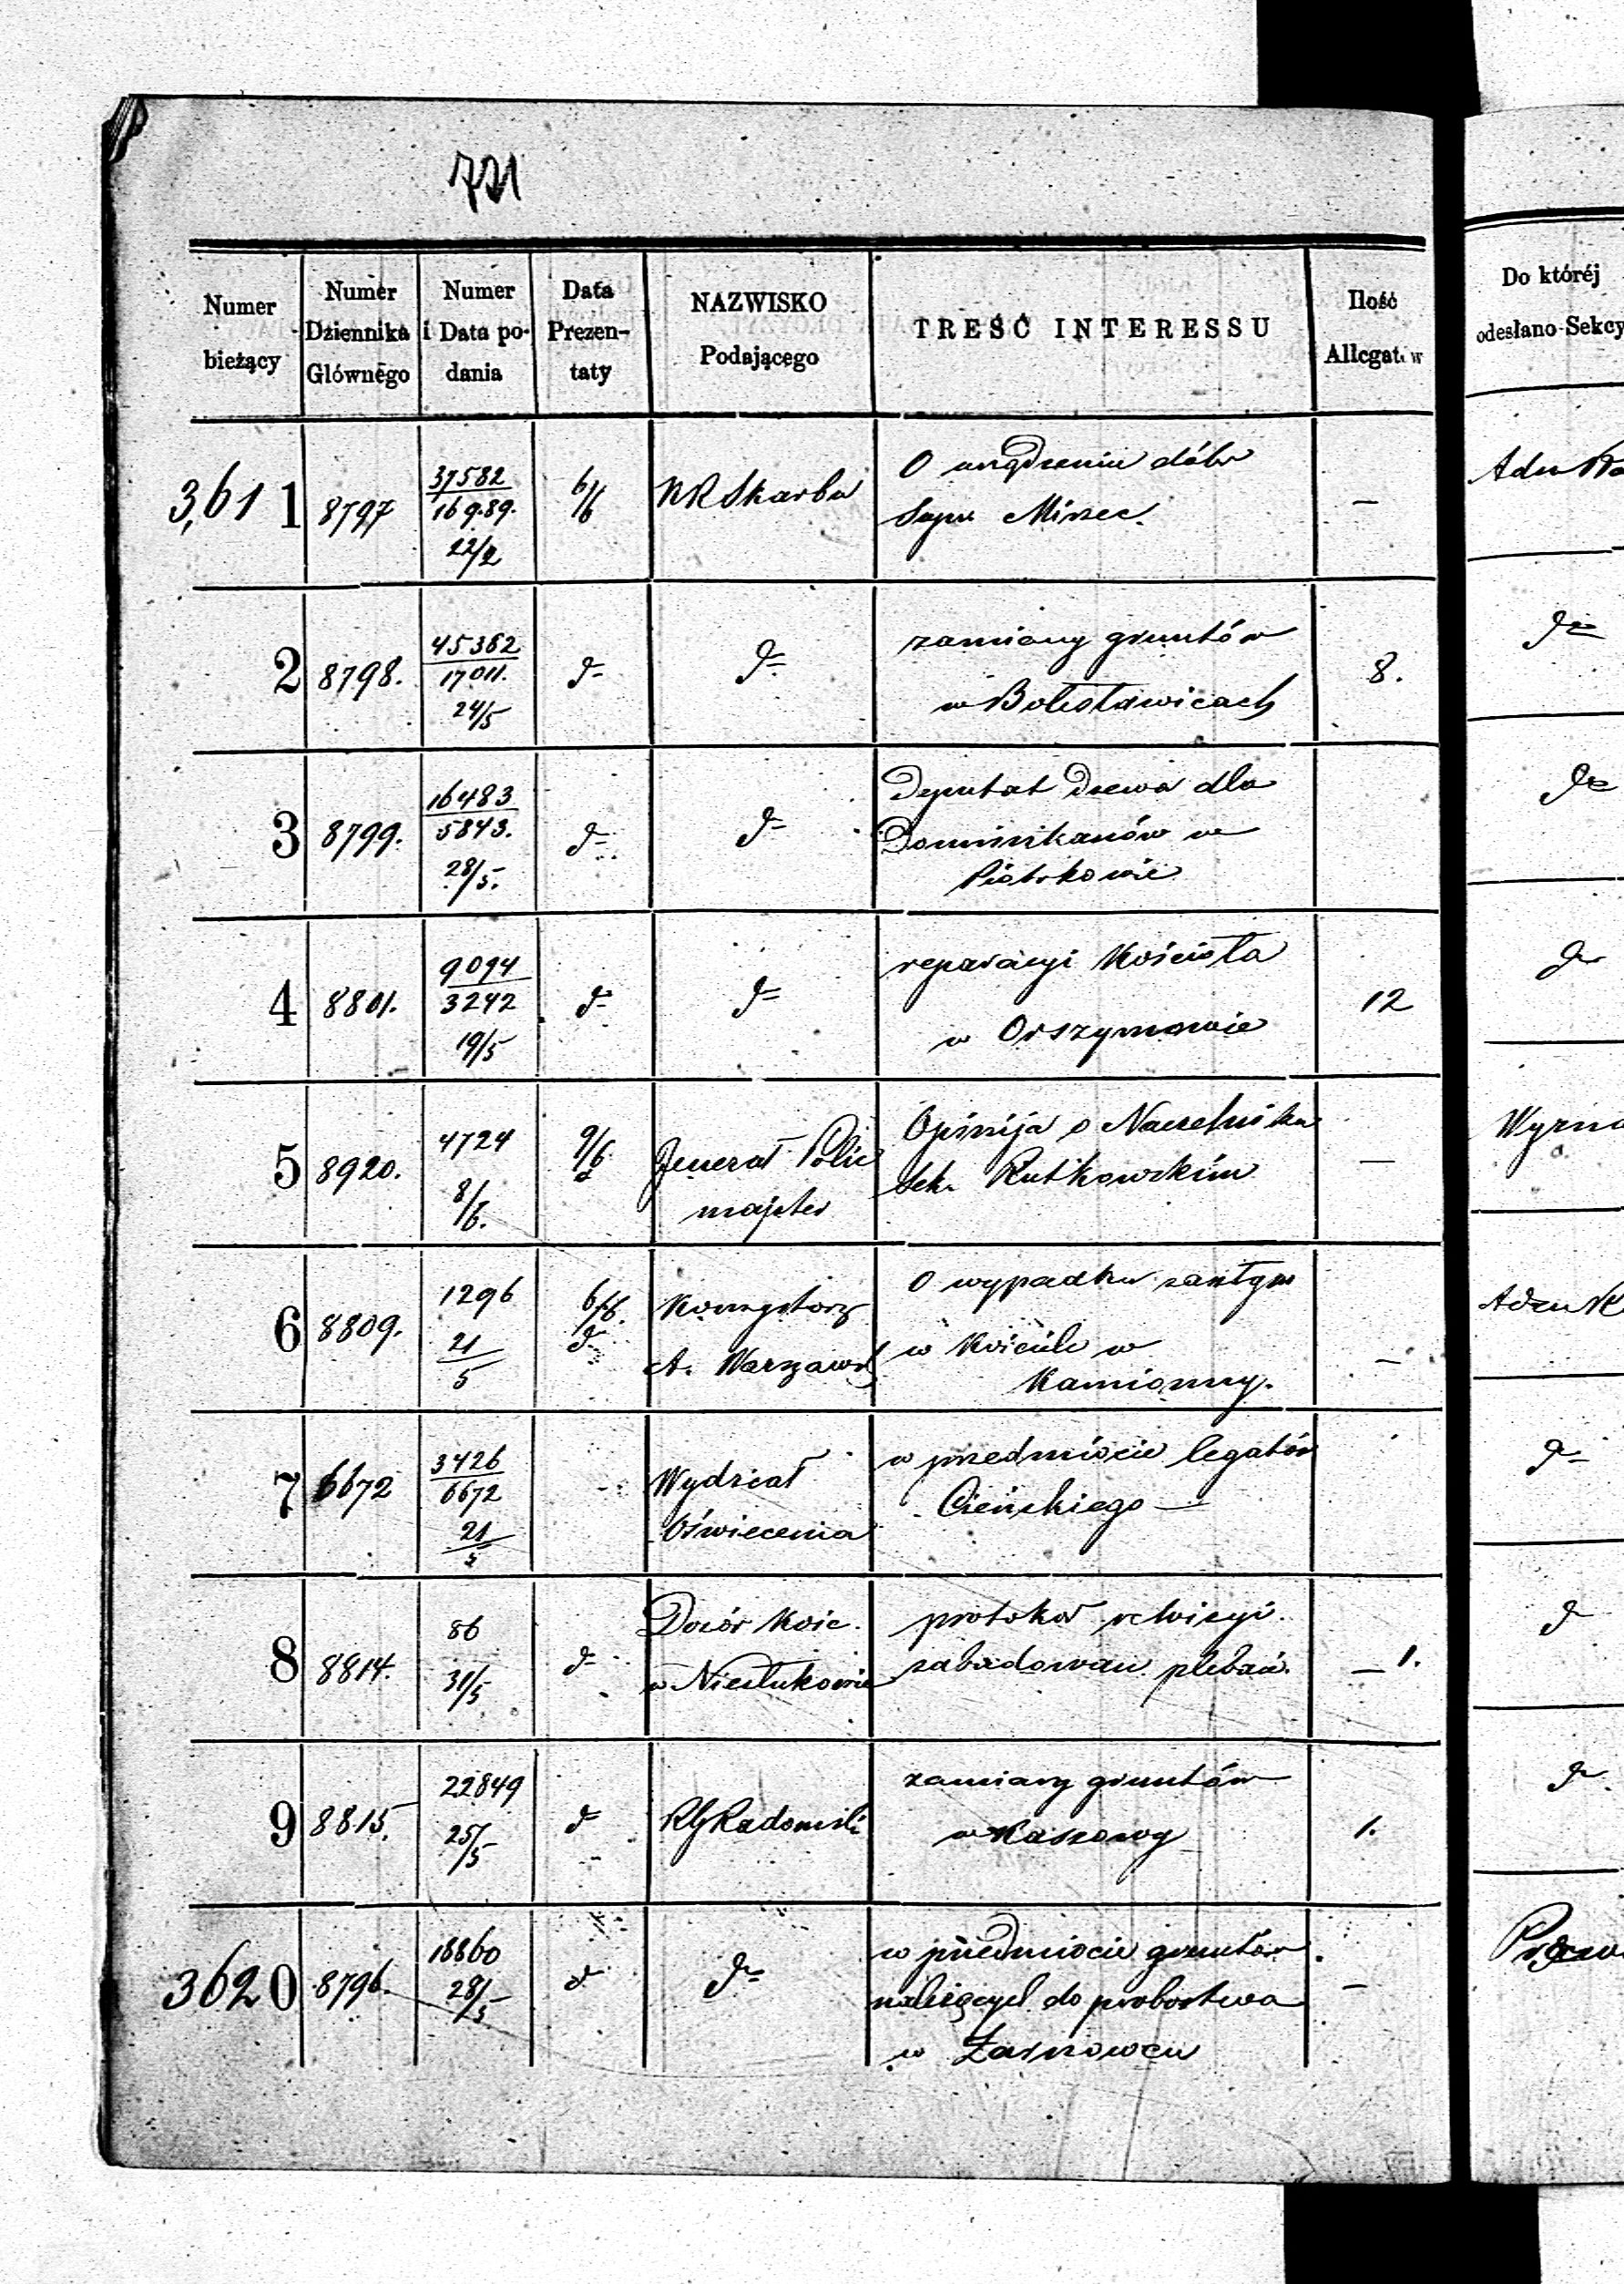 721
Numer bieżący
Numer Dziennika Głównego
Numer i Data podania
Data Prezentaty
NAZWISKO Podającego
TREŚĆ INTERESSU
Ilość Allegatów
Do któréj odesłano Sekcy
3,611 8797 37582 / 16989. 22/2 6/6 KR Skarbu
O urządzeniu dóbr
Supr. Mirzec. —
2 8798. 45362 / 17011. 24/5 d= d=
zamiany gruntów
w Bolesławicach 8. d=
3 8799. 16483 / 5843. 28/5. d= d=
Deputat drzewa dla
Dominikanów w
Piotrkowie d=
4 8801. 9094 / 3242 19/5 d= d=
reparacyi Kościoła
w Orszymowie 12 d=
5 8920. 4724 8/6. 9/6 Jenerał Polic
majster
Opinija o Naczelniku
Sek. Rutkowskim —
6 8809. 1296 21/5 6/6. d= Konsystorz
A. Warszaws
O wypadku zaszłym
w Kościele w
Kamionny. —
7 6672 3426 / 6672 21/5 Wydział
Oświecenia
w przedmiocie legatów
Cieńskiego — d=
8 8814. 86 31/5 d= Dozór Kośc.
w Niesłukowie
protokół rewizyi
zabudowań plebań. — 1. d=
9 8815. 22849 25/5 d= RG Radomski
zamiany gruntów
w Kaszowy 1. d=
3620 8796. 18860 28/5 d= d=
w przedmiocie gruntów
należących do probostwa
w Żarnowcu —